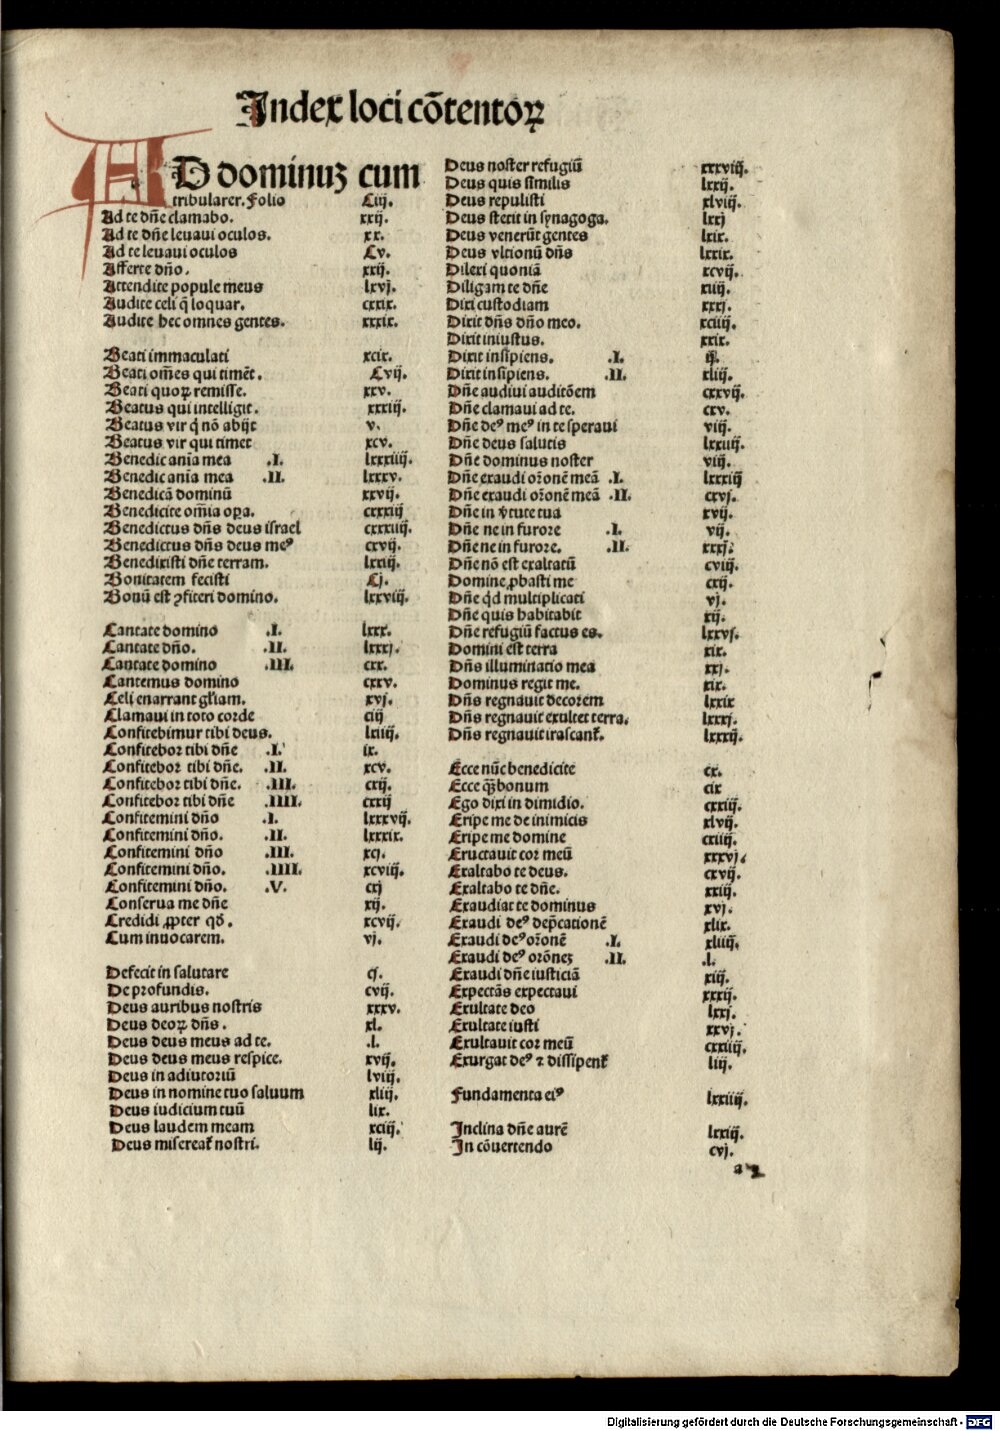 Index loci cōtentoꝝ
AD dominuꝫ cum
tribularer. Folio Ciij.
Ad te dn̄e clamabo. xxij.
Ad te dn̄e leuaui oculos. xx.
Ad te leuaui oculos Cv.
Afferte dn̄o. xxij.
Attendite popule meus lxvj.
Audite celi q̄ loquar. cxxix.
Audite hec omnes gentes. xxxix.
Beati immaculati xcix.
Beati om̄es qui timēt. Cvij.
Beati quoꝝ remisse. xxv.
Beatus qui intelligit. xxxiij.
Beatus vir q̄ nō abijt v.
Beatus vir qui timet xcv.
Benedic anīa mea .I. lxxxiiij.
Benedic anīa mea .II. lxxxv.
Benedicā dominū xxvij.
Benedicite om̄ia oꝑa. cxxxiij
Benedictus dn̄s deus israel cxxxiiij.
Benedictus dn̄s deus meꝰ cxvij.
Benedixisti dn̄e terram. lxxiij.
Bonitatem fecisti Cj.
Bonū est ꝯfiteri domino. lxxviij.
Cantate domino .I. lxxx.
Cantate dn̄o. .II. lxxxj.
Cantate domino .III. cxx.
Cantemus domino cxxv.
Celi enarrant gl̄iam. xvj.
Clamaui in toto corde ciij
Confitebimur tibi deus. lxiiij.
Confitebor tibi dn̄e .I. ix.
Confitebor tibi dn̄e. .II. xcv.
Confitebor tibi dn̄e. .III. cxij.
Confitebor tibi dn̄e .IIII. cxxij
Confitemini dn̄o .I. lxxxvij.
Confitemini dn̄o. .II. lxxxix.
Confitemini dn̄o .III. xcj.
Confitemini dn̄o. .IIII. xcviij.
Confitemini dn̄o. .V. cxj
Conserua me dn̄e xij.
Credidi ꝓpter qd̄. xcvij.
Cum inuocarem. vj.
Defecit in salutare cj.
De profundis. cvij.
Deus auribus nostris xxxv.
Deus deoꝝ dn̄s. xl.
Deus deus meus ad te. .l.
Deus deus meus respice. xvij.
Deus in adiutoriū lviij.
Deus in nomine tuo saluum xliij.
Deus iudicium tuū lix.
Deus laudem meam xciij.
Deus misereat᷑ nostri. lij.
Deus noster refugiū xxxviij.
Deus quis similis lxxij.
Deus repulisti xlviij.
Deus stetit in synagoga. lxxj
Deus venerūt gentes lxix.
Deus vltionū dn̄s lxxix.
Dilexi quoniā xcvij.
Diligam te dn̄e xiiij.
Dixi custodiam xxxj.
Dixit dn̄s dn̄o meo. xciiij.
Dixit iniustus. xxix.
Dixit insipiens. .I.
Dixit insipiens. .II. xliij.
Dn̄e audiui auditōem cxxvij.
Dn̄e clamaui ad te. cxv.
Dn̄e deꝰ meꝰ in te speraui viij.
Dn̄e deus salutis lxxiiij.
Dn̄e dominus noster viij.
Dn̄e exaudi or̄onē meā .I. lxxxiij
Dn̄e exaudi or̄onē meā .II. cxvj.
Dn̄e in v̄tute tua xvij.
Dn̄e ne in furore .I. vij.
Dn̄e ne in furore. .II. xxxj.
Dn̄e nō est exaltatū cviij.
Domine ꝓbasti me cxij.
Dn̄e qd̄ multiplicati vj.
Dn̄e quis habitabit xij.
Dn̄e refugiū factus es. lxxvj.
Domini est terra xix.
Dn̄s illuminatio mea xxj.
Dominus regit me. xix.
Dn̄s regnauit decorem lxxix
Dn̄s regnauit exultet terra. lxxxj.
Dn̄s regnauit irascant᷑. lxxxij.
Ecce nūc benedicite cx.
Ecce q̄ꝫ bonum cix
Ego dixi in dimidio. cxxiij.
Eripe me de inimicis xlvij.
Eripe me domine cxiiij.
Eructauit cor meū xxxvj.
Exaltabo te deus. cxvij.
Exaltabo te dn̄e. xxiij.
Exaudiat te dominus xvj.
Exaudi deꝰ dep̄cationē xlix.
Exaudi deꝰ or̄onē .I. xliiij.
Exaudi deꝰ orōneꝫ .II. .l.
Exaudi dn̄e iusticiā xiij.
Expectās expectaui xxxij.
Exultate deo lxxj.
Exultate iusti xxvj.
Exultauit cor meū cxxiiij.
Exurgat deꝰ ⁊ dissipent᷑ liij.
Fundamenta eiꝰ lxxiiij.
Inclina dn̄e aurē lxxiij.
In cōuertendo cvj.
a 2
Digitalisierung gefördert durch die Deutsche Forschungsgemeinschaft - DFG